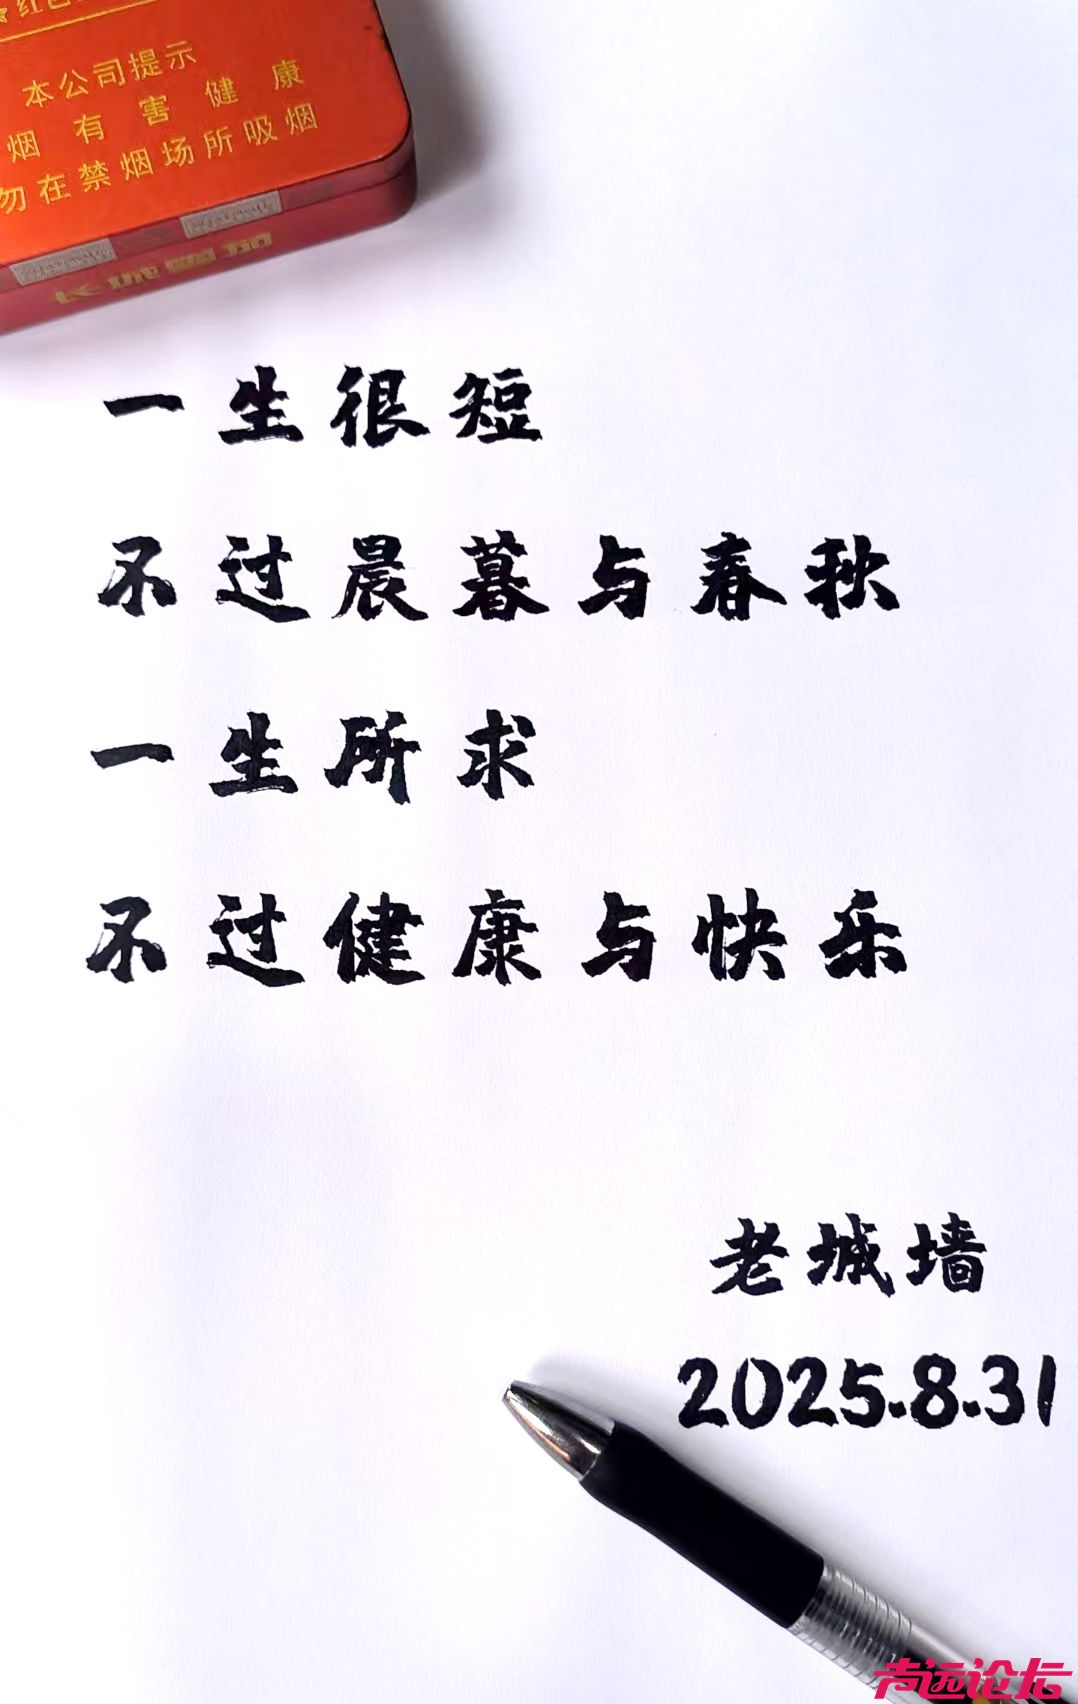 本公司提示
烟有害健康
勿在禁烟场所吸烟
一生很短
不过晨暮与春秋
一生所求
不过健康与快乐
老城墙
2025.8.31
声远论坛